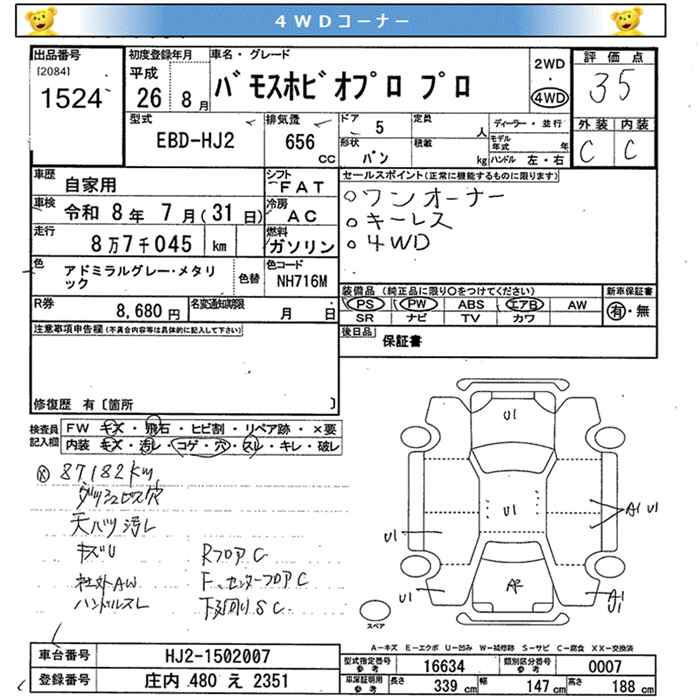 4WDコーナー
出品番号
[2084]
1524
初度登録年月
平成
26 8月
車名・グレード
バモスホビオプロ プロ
2WD
・
4WD
評価点
3 5
外装 内装
C C
型式
EBD-HJ2
排気量
656
cc
ドア
5
定員
人
ディーラー・並行
モデル年式 年
形状
バン
積載
kg
ハンドル 左・右
車歴
自家用
シフト
FAT
車検
令和 8年 7月(31日)
冷房
AC
走行
8万7千045 km
燃料
ガソリン
色
アドミラルグレー・メタリ
ック
色替
色コード
NH716M
R券
8,680円
名変通知期限
月 日
セールスポイント(正常に機能するものに限ります)
○ワンオーナー
○キーレス
○4WD
装備品(純正品に限り○をつけてください)
新車保証書
PS PW ABS エアB AW
SR ナビ TV カワ
有・無
後日品
保証書
注意事項申告欄(不具合内容等は具体的に記入して下さい)
修復歴 有〔箇所 〕
検査員
記入欄
FW キズ・飛石・ヒビ割・リペア跡・×要
内装 キズ・汚レ・コゲ・穴・スレ・キレ・破レ
87182km
ダッシュビス穴
天バリ汚レ
キズU
社外AW
ハンドルスレ
RフロアC
F、センターフロアC
下廻りSC
U1
U1
U1
A1 U1
AP
U1
A1
スペア
A-キズ E-エクボ U-凹み W-補修跡 S-サビ C-腐食 XX-交換済
車台番号
HJ2-1502007
登録番号
庄内 480 え 2351
型式指定番号
参考
16634
類別区分番号
参考
0007
車庫証明用
参考
長さ 339 cm
幅 147 cm
高さ 188 cm